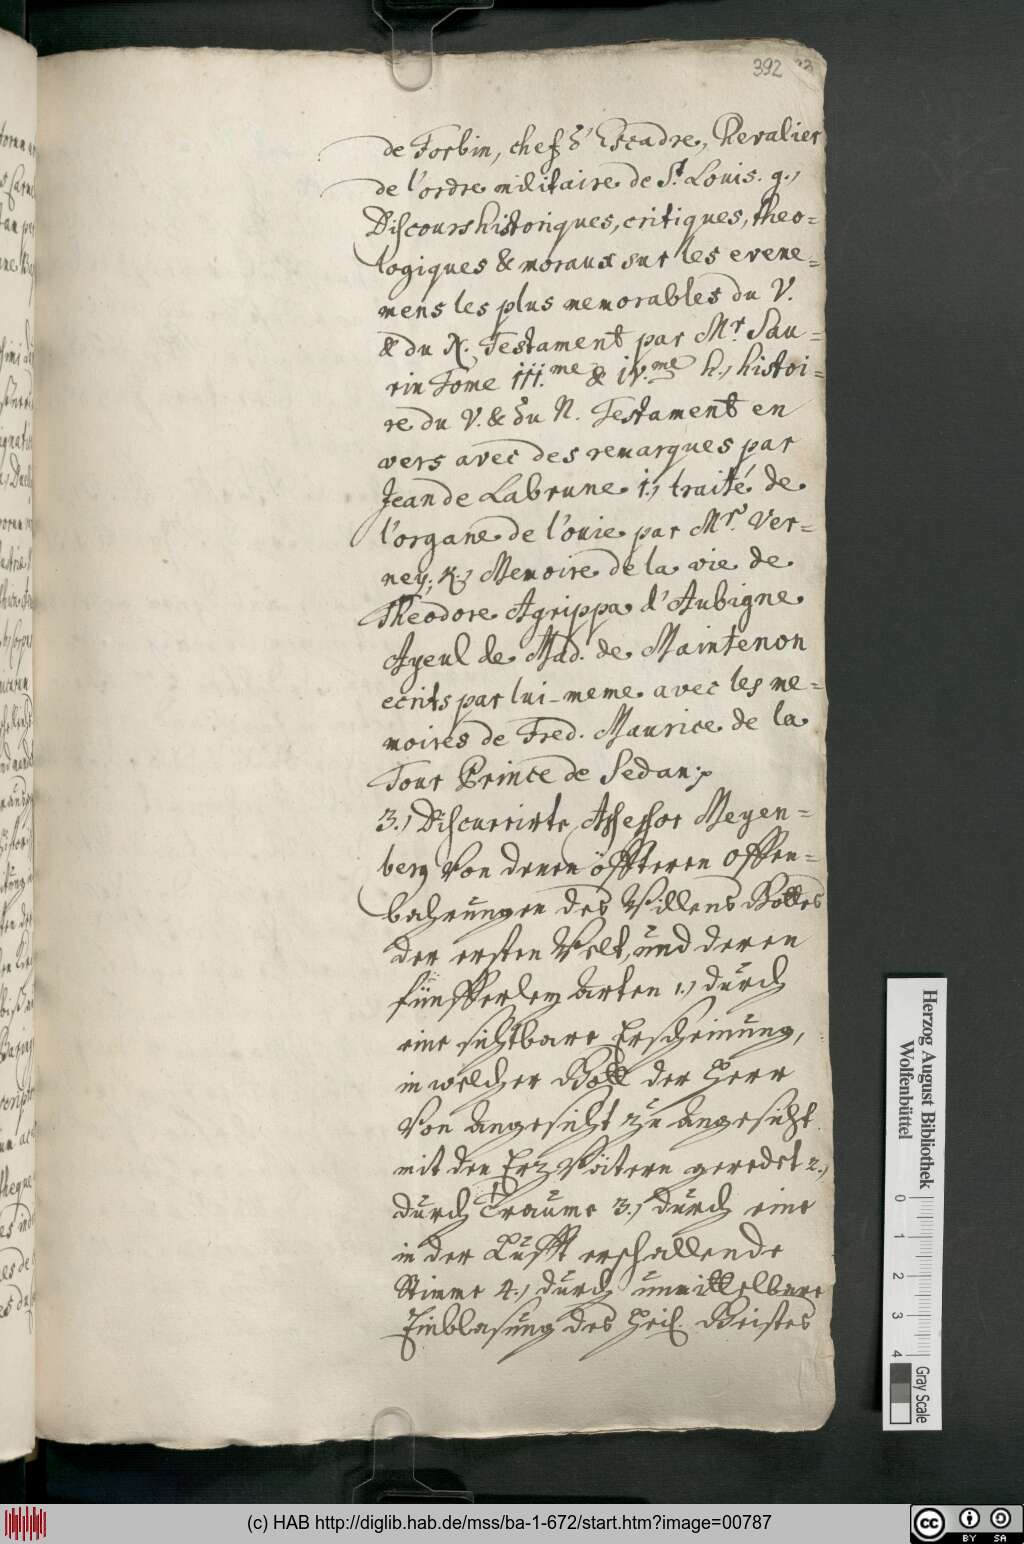 392
de Forbin, chef d'Escadre, Chevalier
de l'ordre militaire de St. Louis. g.,
Discours historiques, critiques, theo=
logiques & moraux sur les evene=
mens les plus memorables du V.
& du N. Testament par Mr. Sau=
rin Tome III.me & IV.me h., histoi=
re du V. & du N. Testament en
vers avec des remarques par
Jean de Labrune i., traité de
l'organe de l'ouie par Mr. Ver=
ney; K., Memoire de la vie de
Theodore Agrippa d'Aubigne
Ayeul de Mad. de Maintenon
ecrits par lui-meme avec les me=
moires de Fred. Maurice de la
Tour Prince de Sedan;
3.) Discurrirte Assessor Meyen=
berg von denen öffteren Offen=
bahrungen des Willens Gottes
der ersten Welt, und deren
fünfferley Arten 1.) durch
eine sichtbare Erscheinung,
in welcher Gott der Herr
von Angesicht zu Angesicht
mit den Erz Vätern geredet 2.)
durch Träume 3.) durch eine
in der Lufft erschallende
Stimme 4.) durch unmittelbare
Einblasung des Heil. Geistes
Herzog August Bibliothek
Wolfenbüttel
0 1 2 3 4
Gray Scale
(c) HAB http://diglib.hab.de/mss/ba-1-672/start.htm?image=00787
cc BY SA